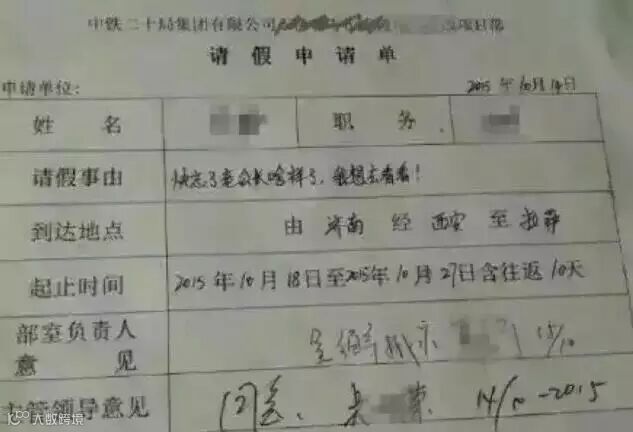 中铁二十局集团有限公司
请假申请单
申请单位: 2015年10月14日
姓名 职务
请假事由 快忘了老公长啥样了,我想去看看!
到达地点 由 济南 经 西安 至 拉萨
起止时间 2015年10月18日至2015年10月27日含往返10天
部室负责人
意见
主管领导意见 同意 14/10-2015
大数跨境